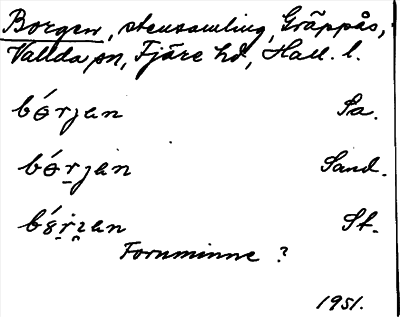 Borgen, stensamling, Gräppås,
Vallda sn, Fjäre hd, Hall. l.
bórjan Sa.
bórjan Sand.
Fornminne ?
1951.